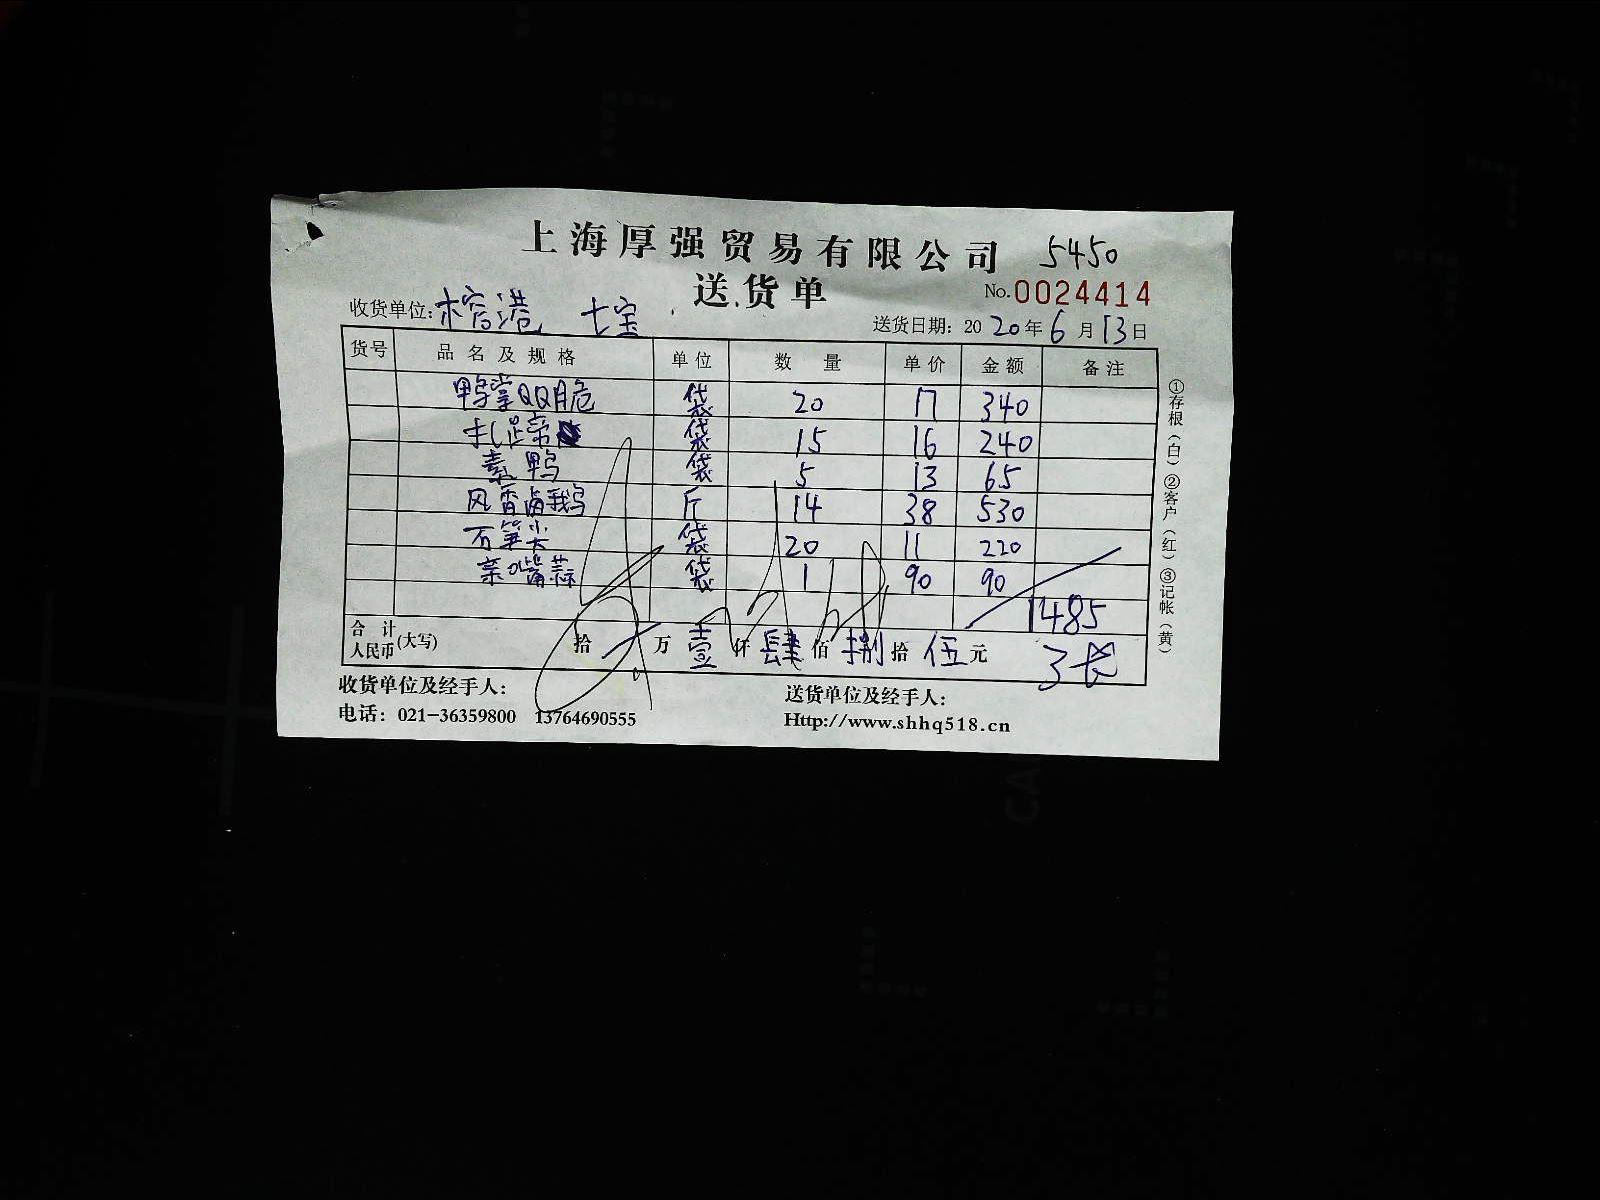 上海厚强贸易有限公司 5450
送货单 No.0024414
收货单位:榕港 七宝 送货日期: 2020年6月13日
货号 品名及规格 单位 数量 单价 金额 备注
鸭掌QQ脆 袋 20 17 340
扎蹄 袋 15 16 240
素鸭 袋 5 13 65
风香卤鹅 斤 14 38 530
石笋尖 袋 20 11 220
亲嘴蒜 袋 1 90 90
1485
合计人民币(大写) 拾 万 壹仟 肆佰 捌拾 伍元 3长
收货单位及经手人: 送货单位及经手人:
电话: 021-36359800 13764690555 Http://www.shhq518.cn
①存根(白)②客户(红)③记帐(黄)